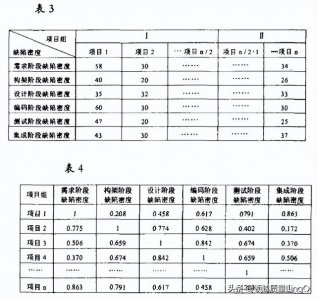 表 3
项目组 Ⅰ Ⅱ
缺陷密度 项目 1 项目 2 …项目 n/2 项目 n/2+1 …项目 n
需求阶段缺陷密度 58 30 …… …… 34
构架阶段缺陷密度 40 20 …… …… 26
设计阶段缺陷密度 35 32 …… …… 33
编码阶段缺陷密度 60 30 …… …… 30
测试阶段缺陷密度 47 20 …… …… 25
集成阶段缺陷密度 43 30 …… …… 37
表 4
项目组 需求阶段缺陷密度 构架阶段缺陷密度 设计阶段缺陷密度 编码阶段缺陷密度 测试阶段缺陷密度 集成阶段缺陷密度
项目 1 1 0.208 0.458 0.617 0791 0.863
项目 2 0.775 1 0.774 0.628 0.402 0.172
项目 3 0.506 0.659 1 0.842 0.674 0.370
项目 4 0.370 0.674 0.842 1 0.659 0.506
…… …… …… …… …… 1 ……
项目 n 0.863 0.791 0.617 0.458